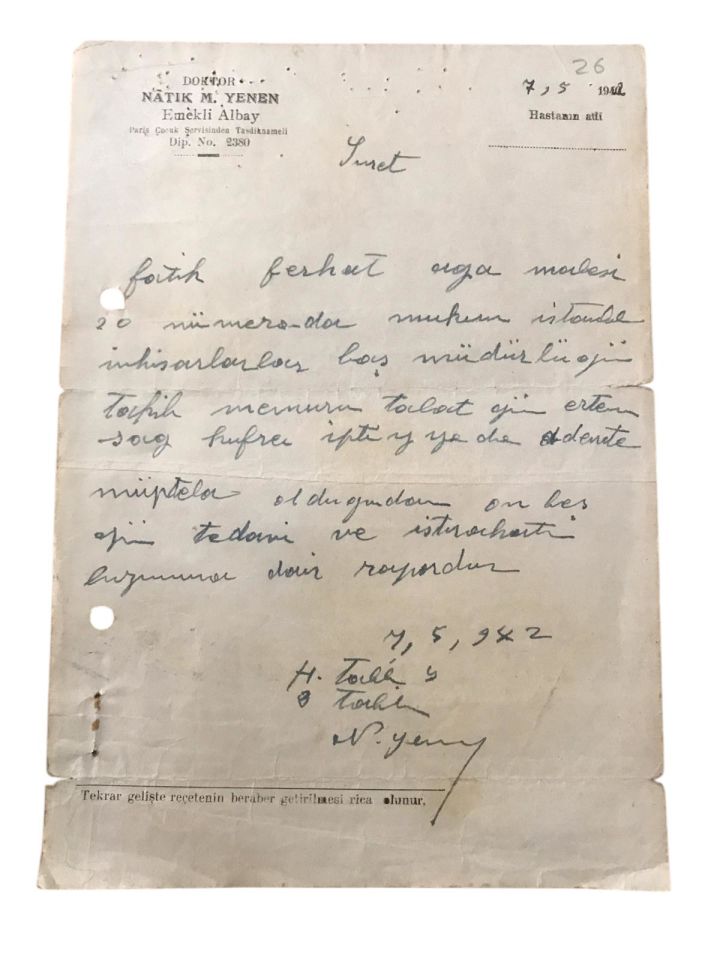 26
DOKTOR
NÂTIK M. YENEN
Emekli Albay
Paris Çocuk Servisinden Tasdiknameli
Dip. No. 2380
7, 5 1942
Hastanın adı
Suret
fatih ferhat aga malesi
20 nümeroda mukim istanbul
inhisarlarlar baş müdürlügü
takib memuru talat ertem
sag hufrei
müptela oldugudan on beş
gün tedavi ve istirahati
luzumuna dair rapordur
7, 5, 942
H.
N. Yenen
Tekrar gelişte reçetenin beraber getirilmesi rica olunur.